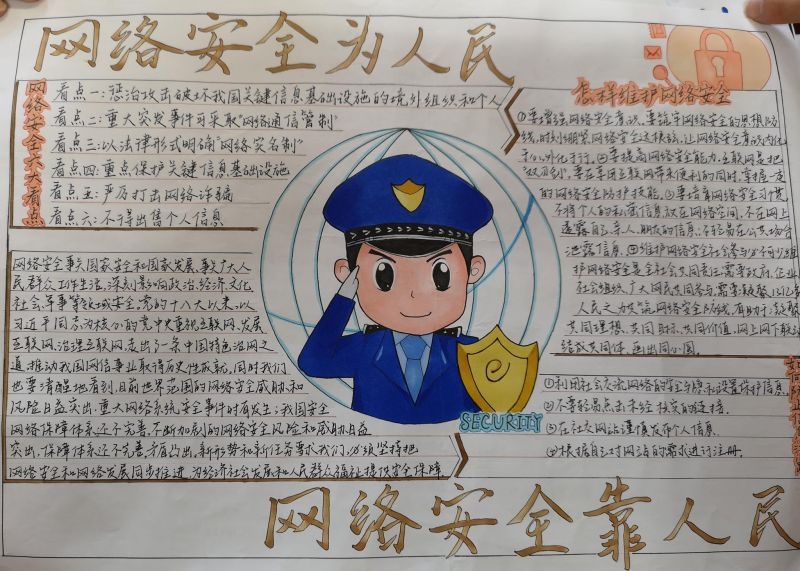 网络安全为人民
网络安全六大看点
看点一:惩治攻击破坏我国关键信息基础设施的境外组织和个人
看点二:重大突发事件可采取“网络通信管制”
看点三:以法律形式明确“网络实名制”
看点四:重点保护关键信息基础设施
看点五:严厉打击网络诈骗
看点六:不得出售个人信息
怎样维护网络安全
①要增强网络安全意识,要筑牢网络安全的思想防
线,时刻绷紧网络安全这根弦,让网络安全意识内化
于心,外化于行,②要提高网络安全能力,互联网是把
“双刃剑”,要在享用互联网带来便利的同时,掌握一定
的网络安全防护技能,③要培育网络安全习惯,
不将个人的私密信息放在网络空间,不在网上
透露自己亲人、朋友的信息;不轻易在公共场合
泄露信息,④维护网络安全社会参与必不可少维
护网络安全是全社会共同责任,需要政府、企业
社会组织、广大网民共同参与,需要凝聚
人民之力
共同理想,共同目标,共同价值,网上网下
结成共同体,画出同心圆.
网络安全事关国家安全和国家发展,事关广大人
民群众工作生活,深刻影响政治、经济、文化
社会、军事等领域安全,党的十八大以来,以
习近平同志为核心的党中央重视互联网、发展
互联网、治理互联网,走出了一条中国特色治网之
道,推动我国网信事业取得历史性成就,同时我们
也要清醒地看到,目前世界范围的网络安全威胁和
风险日益突出,重大网络系统安全事件时有发生;我国安全
网络保障体系还不完善,不断加剧的网络安全风险和威胁日益
突出,保障体系还不完善矛盾凸出,新形势和新任务要求我们,必须坚持把
网络安全和网络发展同步推进,为经济社会发展和人民群众福祉提供安全保障
e
SECURITY
①利用社会交流网络的安全与隐私设置保护信息,
②不要轻易点击未经核实的链接.
③在社交网站谨慎发布个人信息.
④根据自己对网站的需求进行注册.
网络安全靠人民